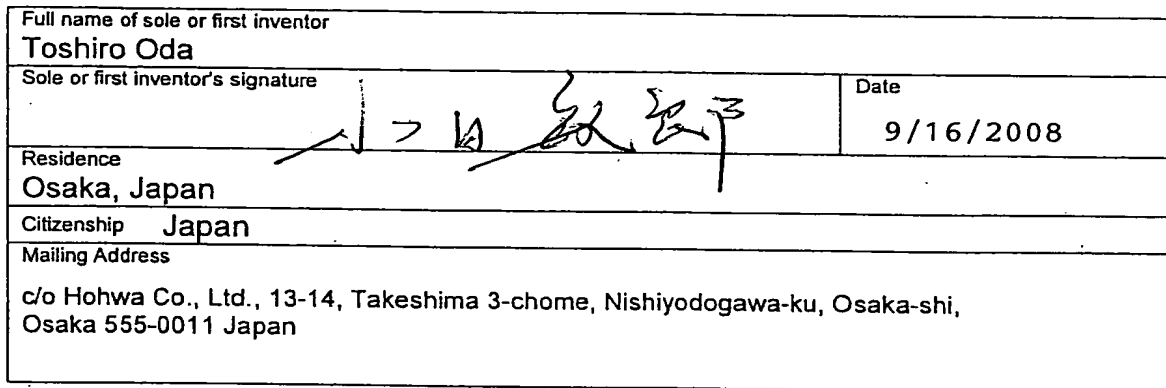 Full name of sole or first inventor
Toshiro Oda
Sole or first inventor's signature
Date
9/16/2008
Residence
Osaka, Japan
Citizenship Japan
Mailing Address
c/o Hohwa Co., Ltd., 13-14, Takeshima 3-chome, Nishiyodogawa-ku, Osaka-shi,
Osaka 555-0011 Japan